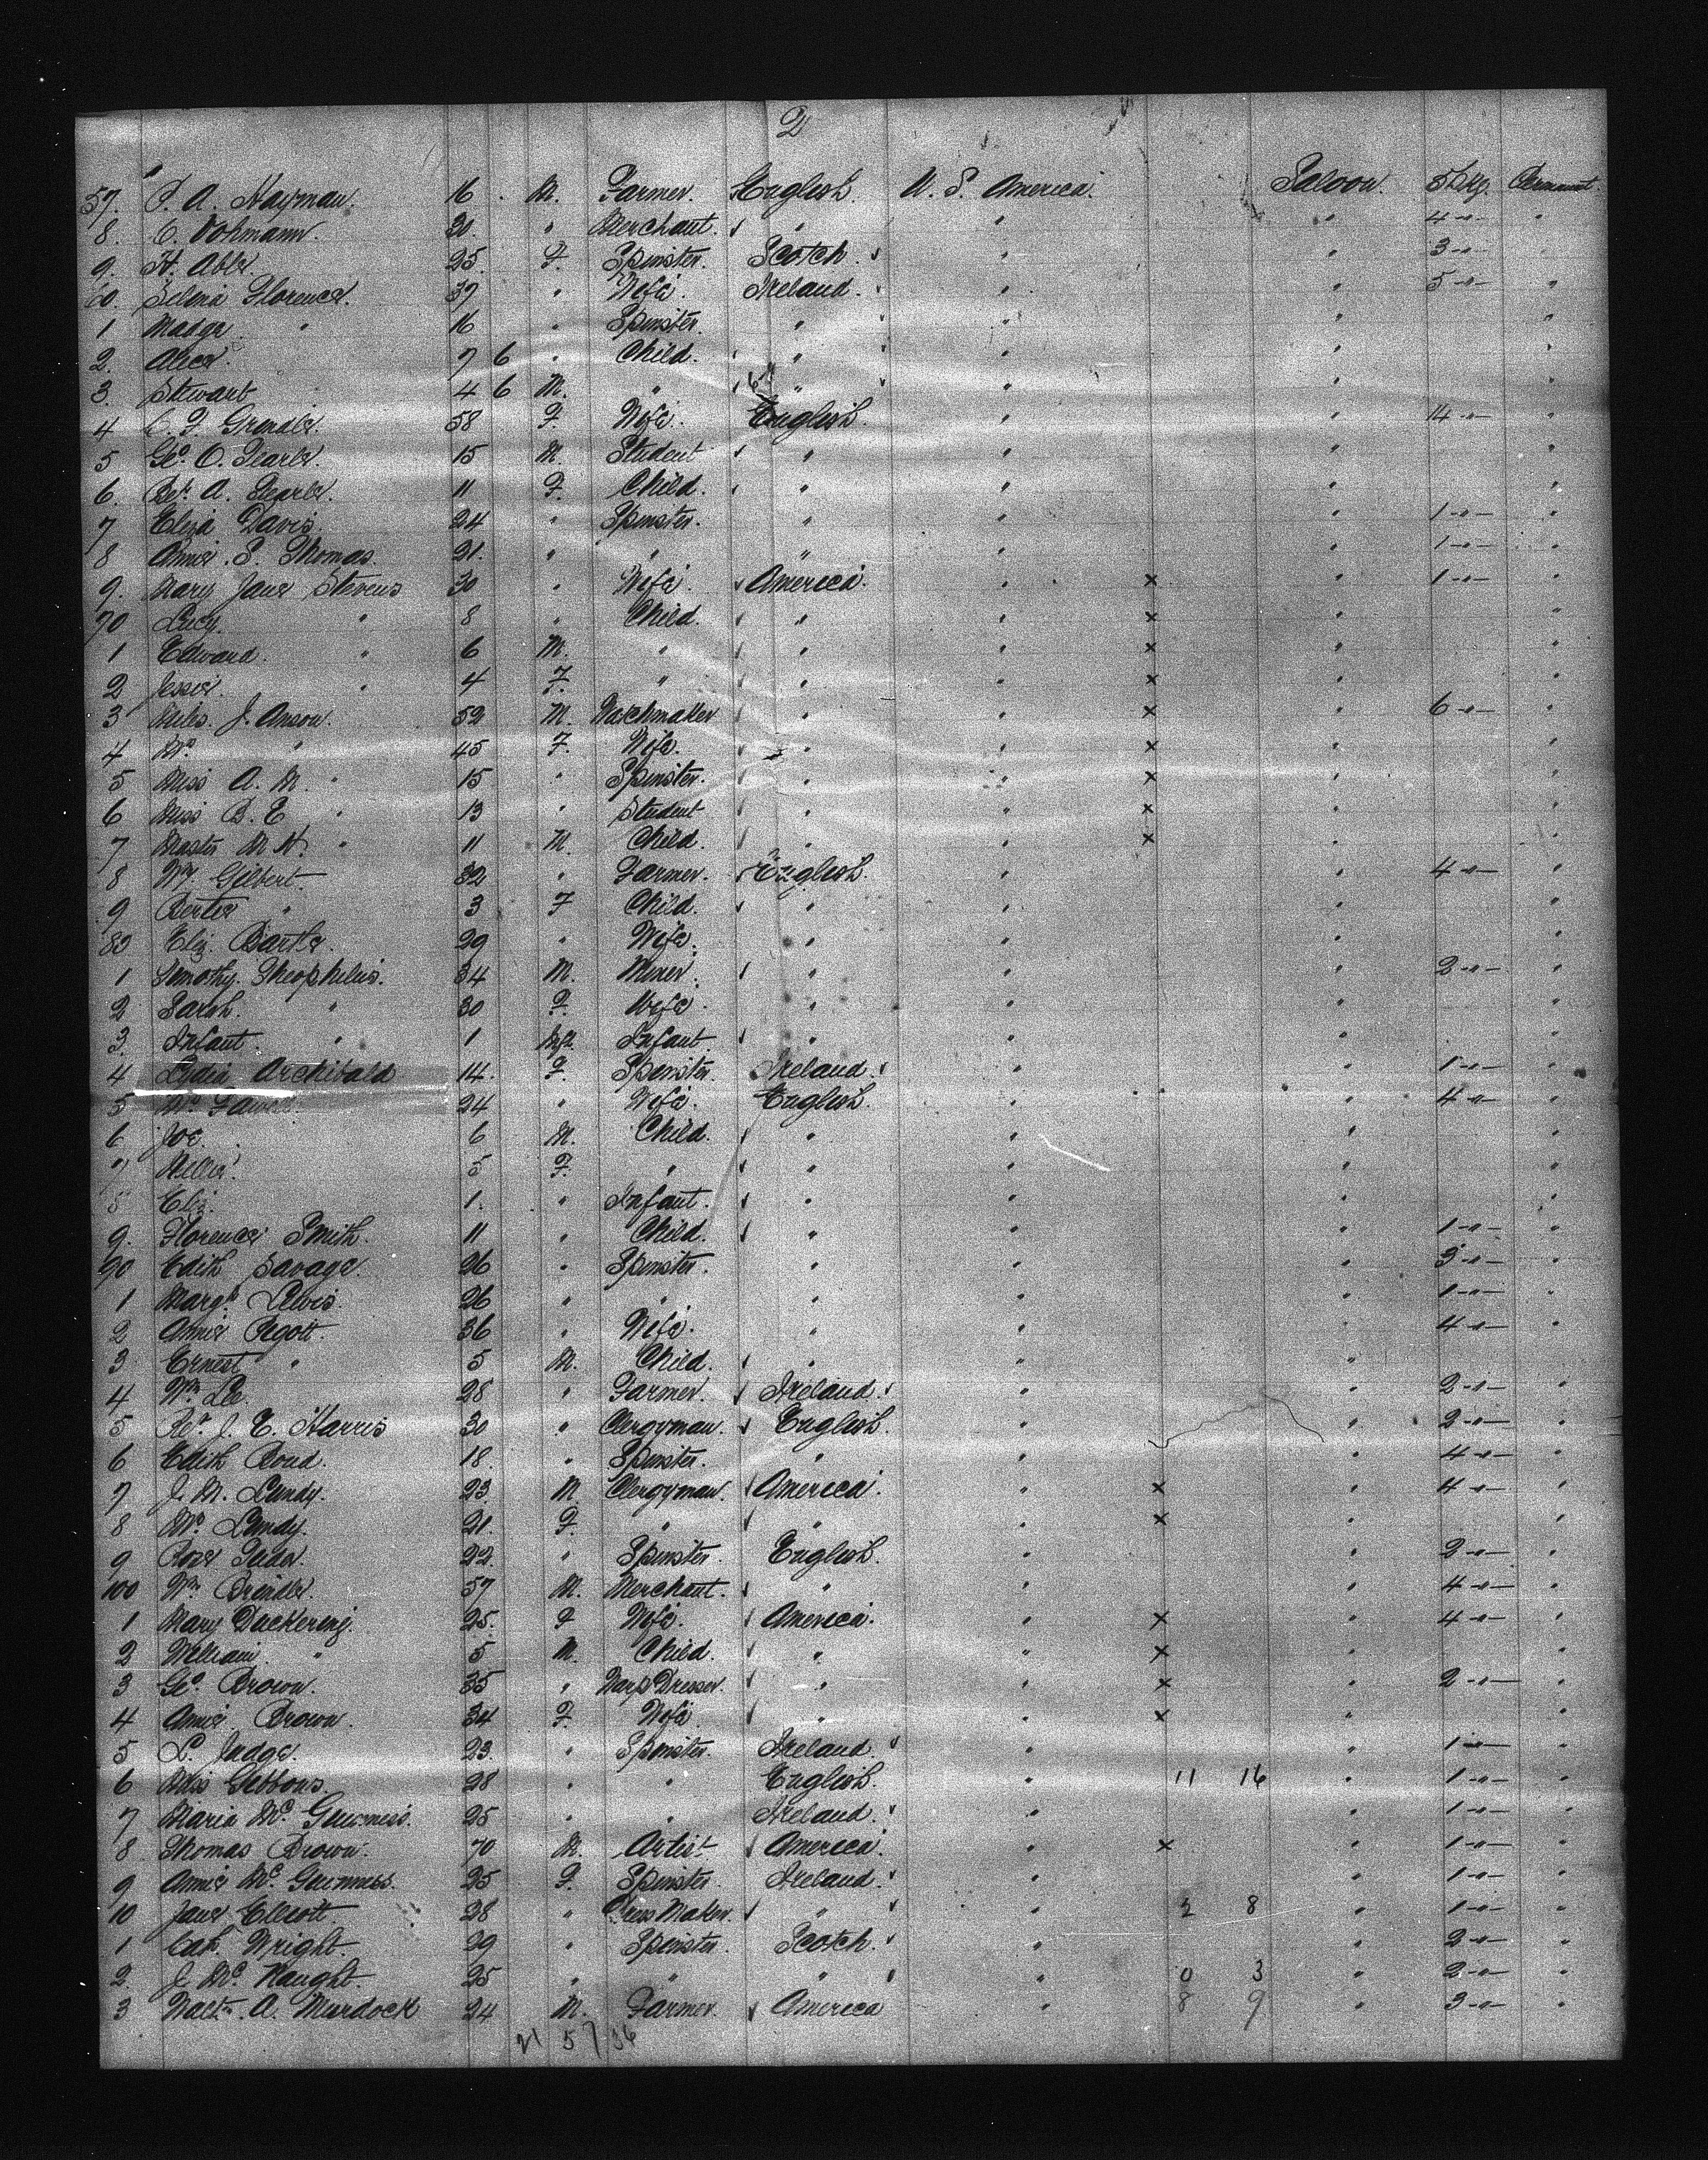 2
57. A. Hayman. 16 . M. Farmer. English. U. S. America. Saloon. 5 Pkg. Permanent.
8. C. Vohmann. " Merchant. " " " 4 -"- "
9. H. Able. 25. F. Spinster. Scotch. " " 3 -"- "
60. Selina Florence. 37 " Wife. Ireland. " " 5 -"- "
1 Madge " 16 " Spinster. " " " "
2. Alice. 7 6 " Child. " " " "
3. Stewart 4 6 M. " " " " "
4 C. F. 58 F. Wife. English. " " 14 -"- "
5 Geo. O. Searle. 15 M. Student " " " "
6. A. Searle. 11 F. Child. " " " "
7 Eliza Davis. 24 " Spinster. " " " 1 -"- "
8 Annie. S. Thomas. 21. " " " " " 1 -"- "
9. Mary Jane Stevens 30 " Wife. America. " x " 1 -"- "
70 Lucy. " 8 " Child. " " x " "
1 Edward. " 6 M. " " " x " "
2 Jessie. " 4 F. " " " x " "
3 Miles. J. Anson. 52 M. Watchmaker " " x " 6 -"- "
4 Mrs. " 45 F. Wife. " " x " "
5 Miss A. M. " 15 " Spinster. " " x " "
6 Miss B. E " 13 " Student " " x " "
7 Master M H. " 11 M. Child. " " x " "
8 Wm Gilbert. 32 " Farmer. English. " " 4 -"- "
9 Bertie " 3 F Child. " " " "
80 Eliz. Bartle. 29 " Wife. " " " "
1 Timothy. Theophilus. 34 M. Miner. " " " 2 -"- "
2 Sarah. " 30 F. Wife. " " " "
3. Infant. " 1 Inft. Infant. " " " "
4 Lydia Archibald 14. F. Spinster. Ireland. " " 1 -"- "
5 Mrs. 24 " Wife. English. " " 4 -"- "
6 Joe. 6 M. Child. " " " "
7 Nellie. 5 F. " " " " "
8 Eliz. 1. " Infant. " " " "
9. Florence Smith. 11 " Child. " " " 1 -"- "
90 Edith Savage. 26 " Spinster. " " " 3 -"- "
1 Margt. Lewis. 26 " " " " " 1 -"- "
2 Annie Pegott. 36 " Wife. " " " 4 -"- "
3 Ernest " 5 M. Child. " " " "
4 Wm. Lee. 28 " Farmer. Ireland. " " 2 -"- "
5 Rev. J. E. Harris 30 " Clergyman. English. " " 2 -"- "
6 Edith Bond. 18. " Spinster. " " " 4 -"- "
7 J. M. Lundy. 23. M Clergyman. America. " x " 4 -"- "
8 Mrs Lundy. 21. F. " " " x " "
9 Rose 22. " Spinster. English. " " 2 -"- "
100 Wm. 57 M. Merchant. " " " 4 -"- "
1 Mary Duckering. 25. F Wife. America. " x " 4 -"- "
2 William. " 5 M. Child. " " x " "
3 Geo. Brown. 35 " Warp Dresser. " " x " 2 -"- "
4 Annie. Brown. 34 F. Wife. " " x " "
5 L. Judge. 23. " Spinster. Ireland. " " 1 -"- "
6 Miss Gibbons. 28 " " English. " 11 16 " 1 -"- "
7 Maria Mc. Guinness. 25 " " Ireland. " " 1 -"- "
8 Thomas Brown. 70 M. Artist America. " x " 1 -"- "
9 Annie Mc Guinness. 25 F. Spinster. Ireland. " " 1 -"- "
10 Jane Elliott. 28 " Dress Maker. " " 2 8 " 1 -"- "
1 Cath. Wright. 29 " Spinster. Scotch. " " 2 -"- "
2. J. Mc. Naught. 25 " " " " 0 3 " 2 -"- "
3 Walter. A. Murdock 24 M. Farmer. America " 8 9 " 3 -"- "
21 57 36